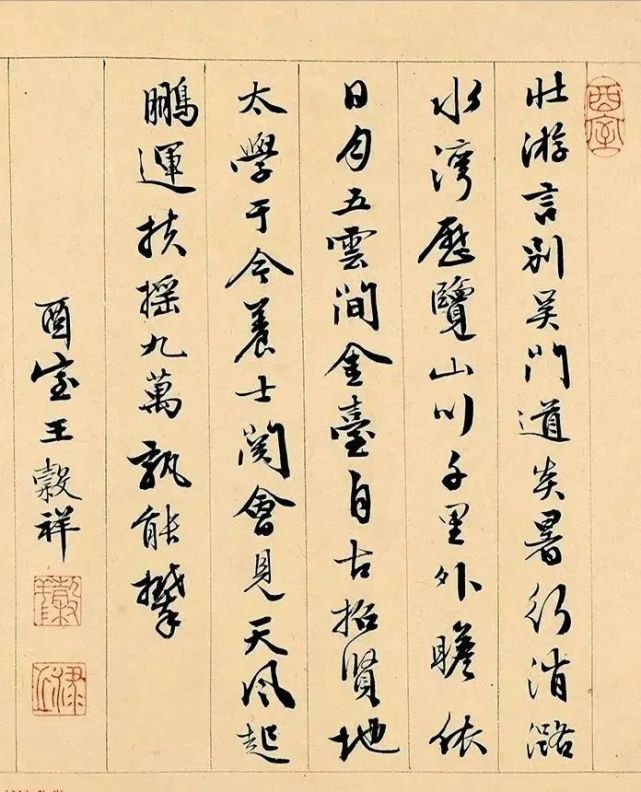 酉室
壯游言別吴門道炎暑行消潞
水灣歷覽山川千里外瞻依
日月五雲間金臺自古招賢地
太學于今養士関會見天風起
鵬運扶摇九萬孰能攀
酉室王榖祥